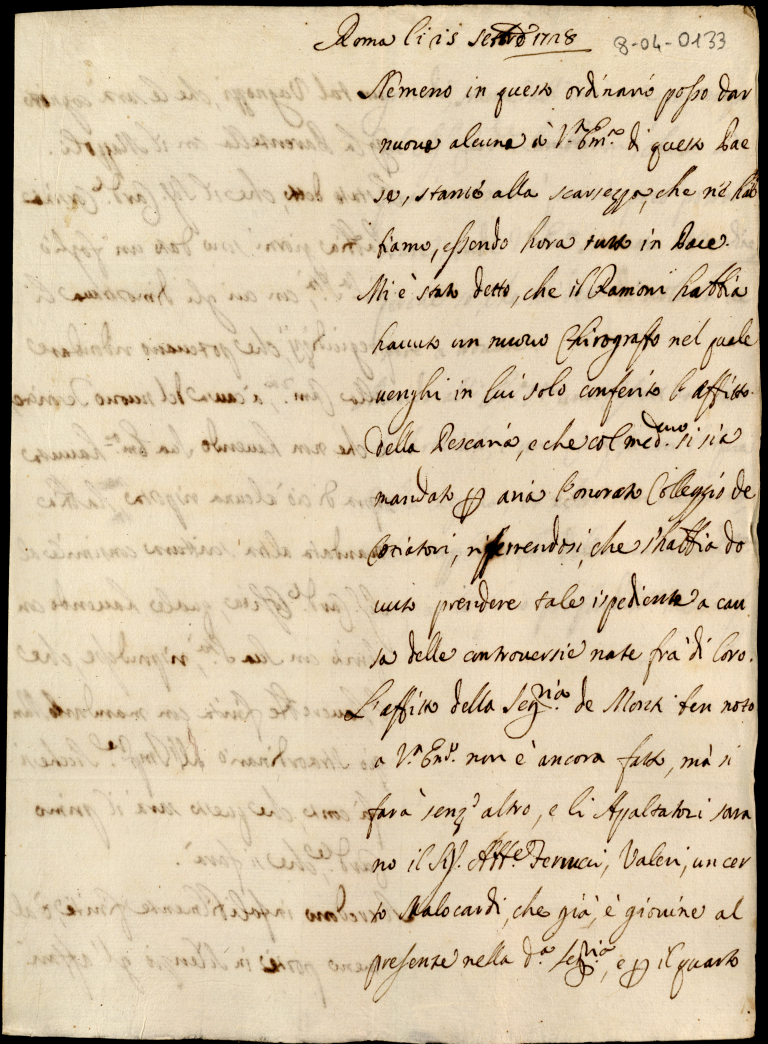 Roma li 25 Settbre 1728
8-04-0133
Nemeno in questo ordinario posso dar
nuova alcuna à V.ra Em.za di questo Pae
se, stante alla scarsezza, che n'è hab
biamo, essendo hora tutto in Pace.
Mi è stato detto, che il Ramoni habbia
havuto un nuovo Chirografo nel quale
venghi in lui solo conferito l'affitto
della Pescaria, e che col med.mo si sia
mandato p aria l'onorato Colleggio de
Cociatori, riferrendosi, che s'habbia do
vuto prendere tale ispediente a cau
sa delle controversie nate frà di loro.
L'affitto della Seg.ria de Monti ben noto
a V.ra Em.za non è ancora fatto, mà si
farà senz'altro, e li Apaltatori sara
no il Sig.r Abb.e Ferrucci, Valeri, un cer
to Malocardi, che già è giovine al
presente nella d.a Seg.ria, e p il quarto